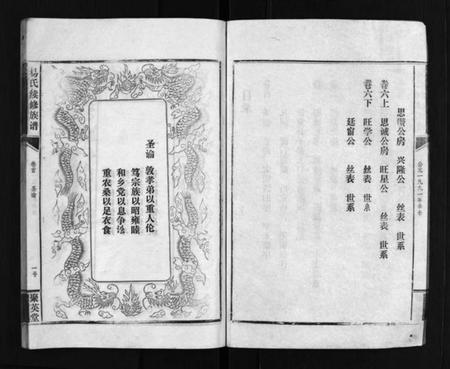 公元一九九一年辛未
思聰公房 兴隆公 丝表 世系
卷六上 思诚公房 旺星公 丝表 世系
卷六下 旺学公 丝表 世系
廷窗公 丝表 世系
圣谕 敦孝弟以重人伦
笃宗族以昭雍睦
和乡党以息争讼
重农桑以足衣食
易氏续修族谱
卷首 圣谕
一号
聚英堂